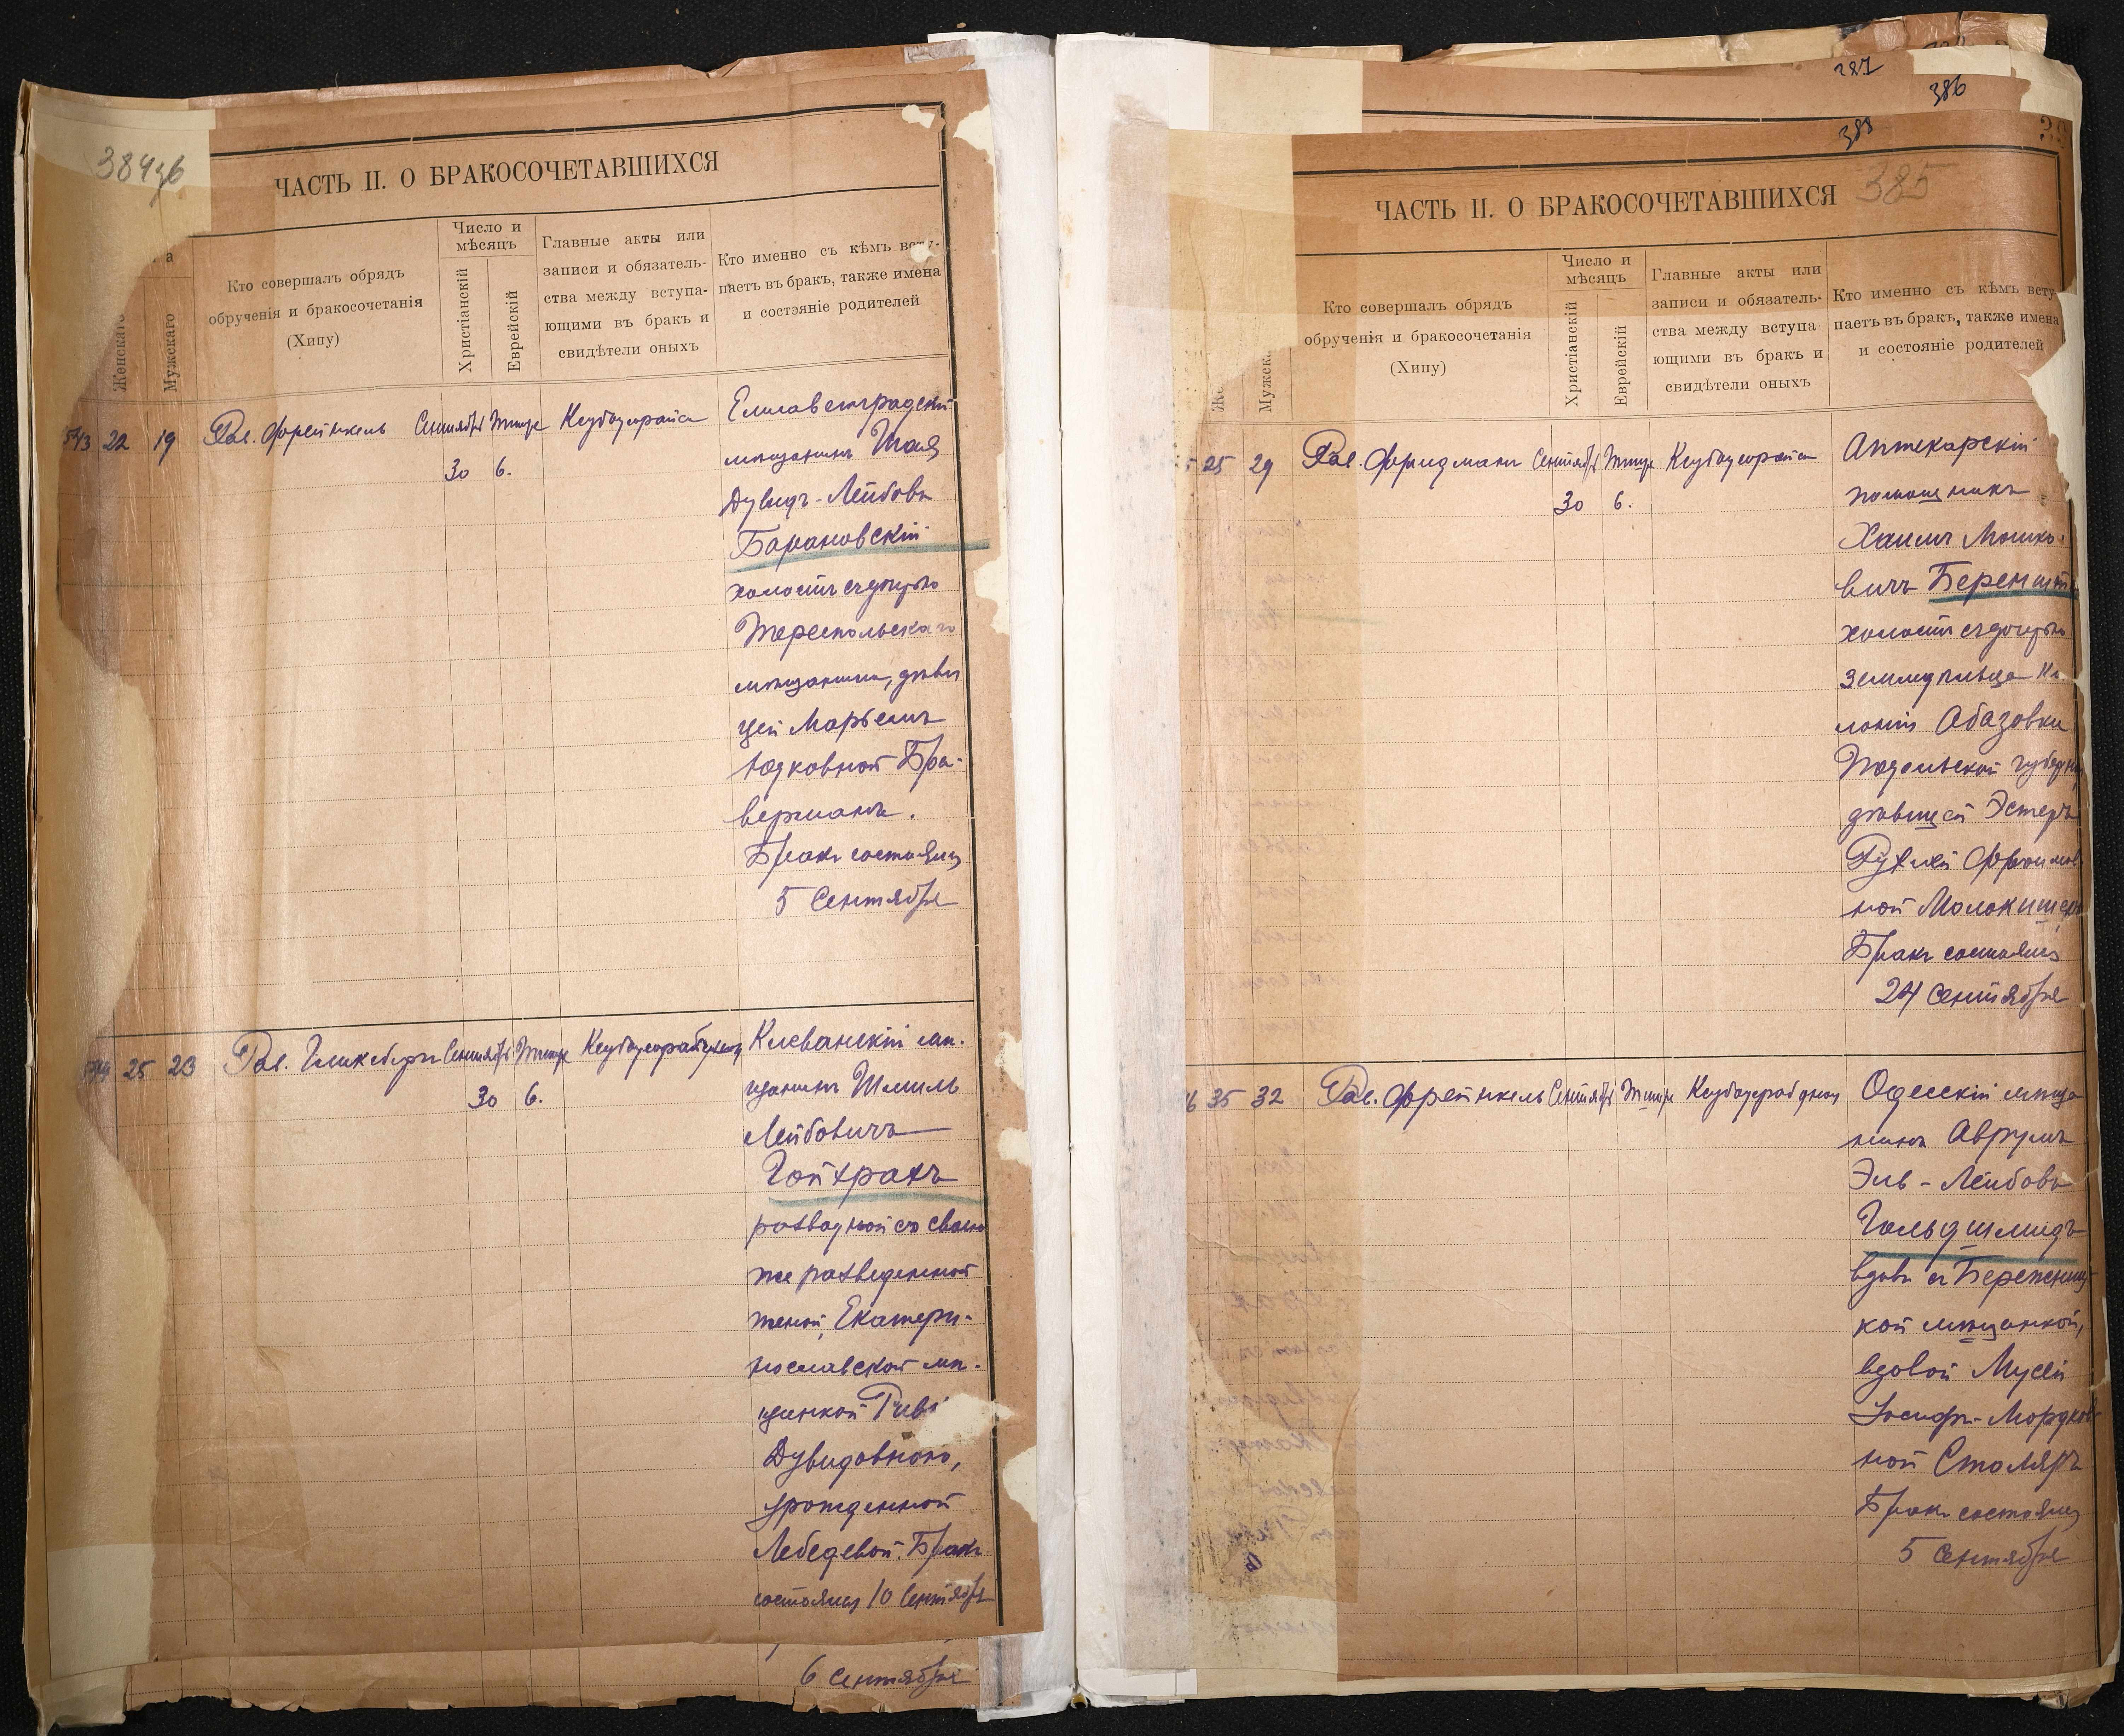 384 об
ЧАСТЬ II. О БРАКОСОЧЕТАВШИХСЯ
Женскаго
Мужскаго
Кто совершалъ обрядъ
обрученія и бракосочетанія
(Хипу)
Число и
мѣсяцъ
Христіанскій
Еврейскій
Главные акты или
записи и обязатель-
ства между вступа-
ющими въ бракъ и
свидѣтели оныхъ
Кто именно съ кѣмъ всту-
паетъ въ бракъ, также имена
и состояніе родителей
543 22 19 Рав. Френкель Сентября Тишре
30 6.
Елисаветградскій
мѣщанинъ Шая
Дувидъ-Лейбовъ
Барановскій
холостъ съ дочерью
Тереспольскаго
мѣщанина, дѣви
цей Марьемъ
Юдковной Бра-
верманъ.
Бракъ состоялся
5 Сентября
544 25 23 Рав. Гликсбергъ Сентября Тишре
30 6.
Клеванскій мѣ-
щанинъ Шмиль
Лейбовичъ
Гойхрахъ
разводной со своею
же разведенной
женой, Екатери-
нославской мѣ-
щанкой
Дувидовною,
урожденной
Лебедевой. Бракъ
состоялся 10 Сентября
6 Сентября
387
386
388
385
ЧАСТЬ II. О БРАКОСОЧЕТАВШИХСЯ
Кто совершалъ обрядъ
обрученія и бракосочетанія
(Хипу)
Число и
мѣсяцъ
Христіанскій
Еврейскій
Главные акты или
записи и обязатель-
ства между вступа
ющими въ бракъ и
свидѣтели оныхъ
Кто именно съ кѣмъ всту
паетъ въ бракъ, также имена
и состояніе родителей
5 25 29 Рав. Фридманъ Сентября Тишре
30 6.
Аптекарскій
помощникъ
Хаимъ Мошко-
вичъ Беренште
холостъ съ дочерью
земледѣльца Ко
лоніи Абазовки
Подольской губерніи,
дѣвицей Эстеръ
Рухлей Фроимов
ной Молокишеръ
Бракъ состоялся
24 Сентября
6 35 32 Рав. Френкель Сентября Тишре
30 6.
Одесскій мѣща
нинъ Аврумъ
Эль-Лейбовъ
Гольдшмидъ
вдовъ съ Бережниц
кой мѣщанкой,
вдовой Мусей
Іосифъ-Мордков
ной Столяръ
Бракъ состоялся
5 Сентября